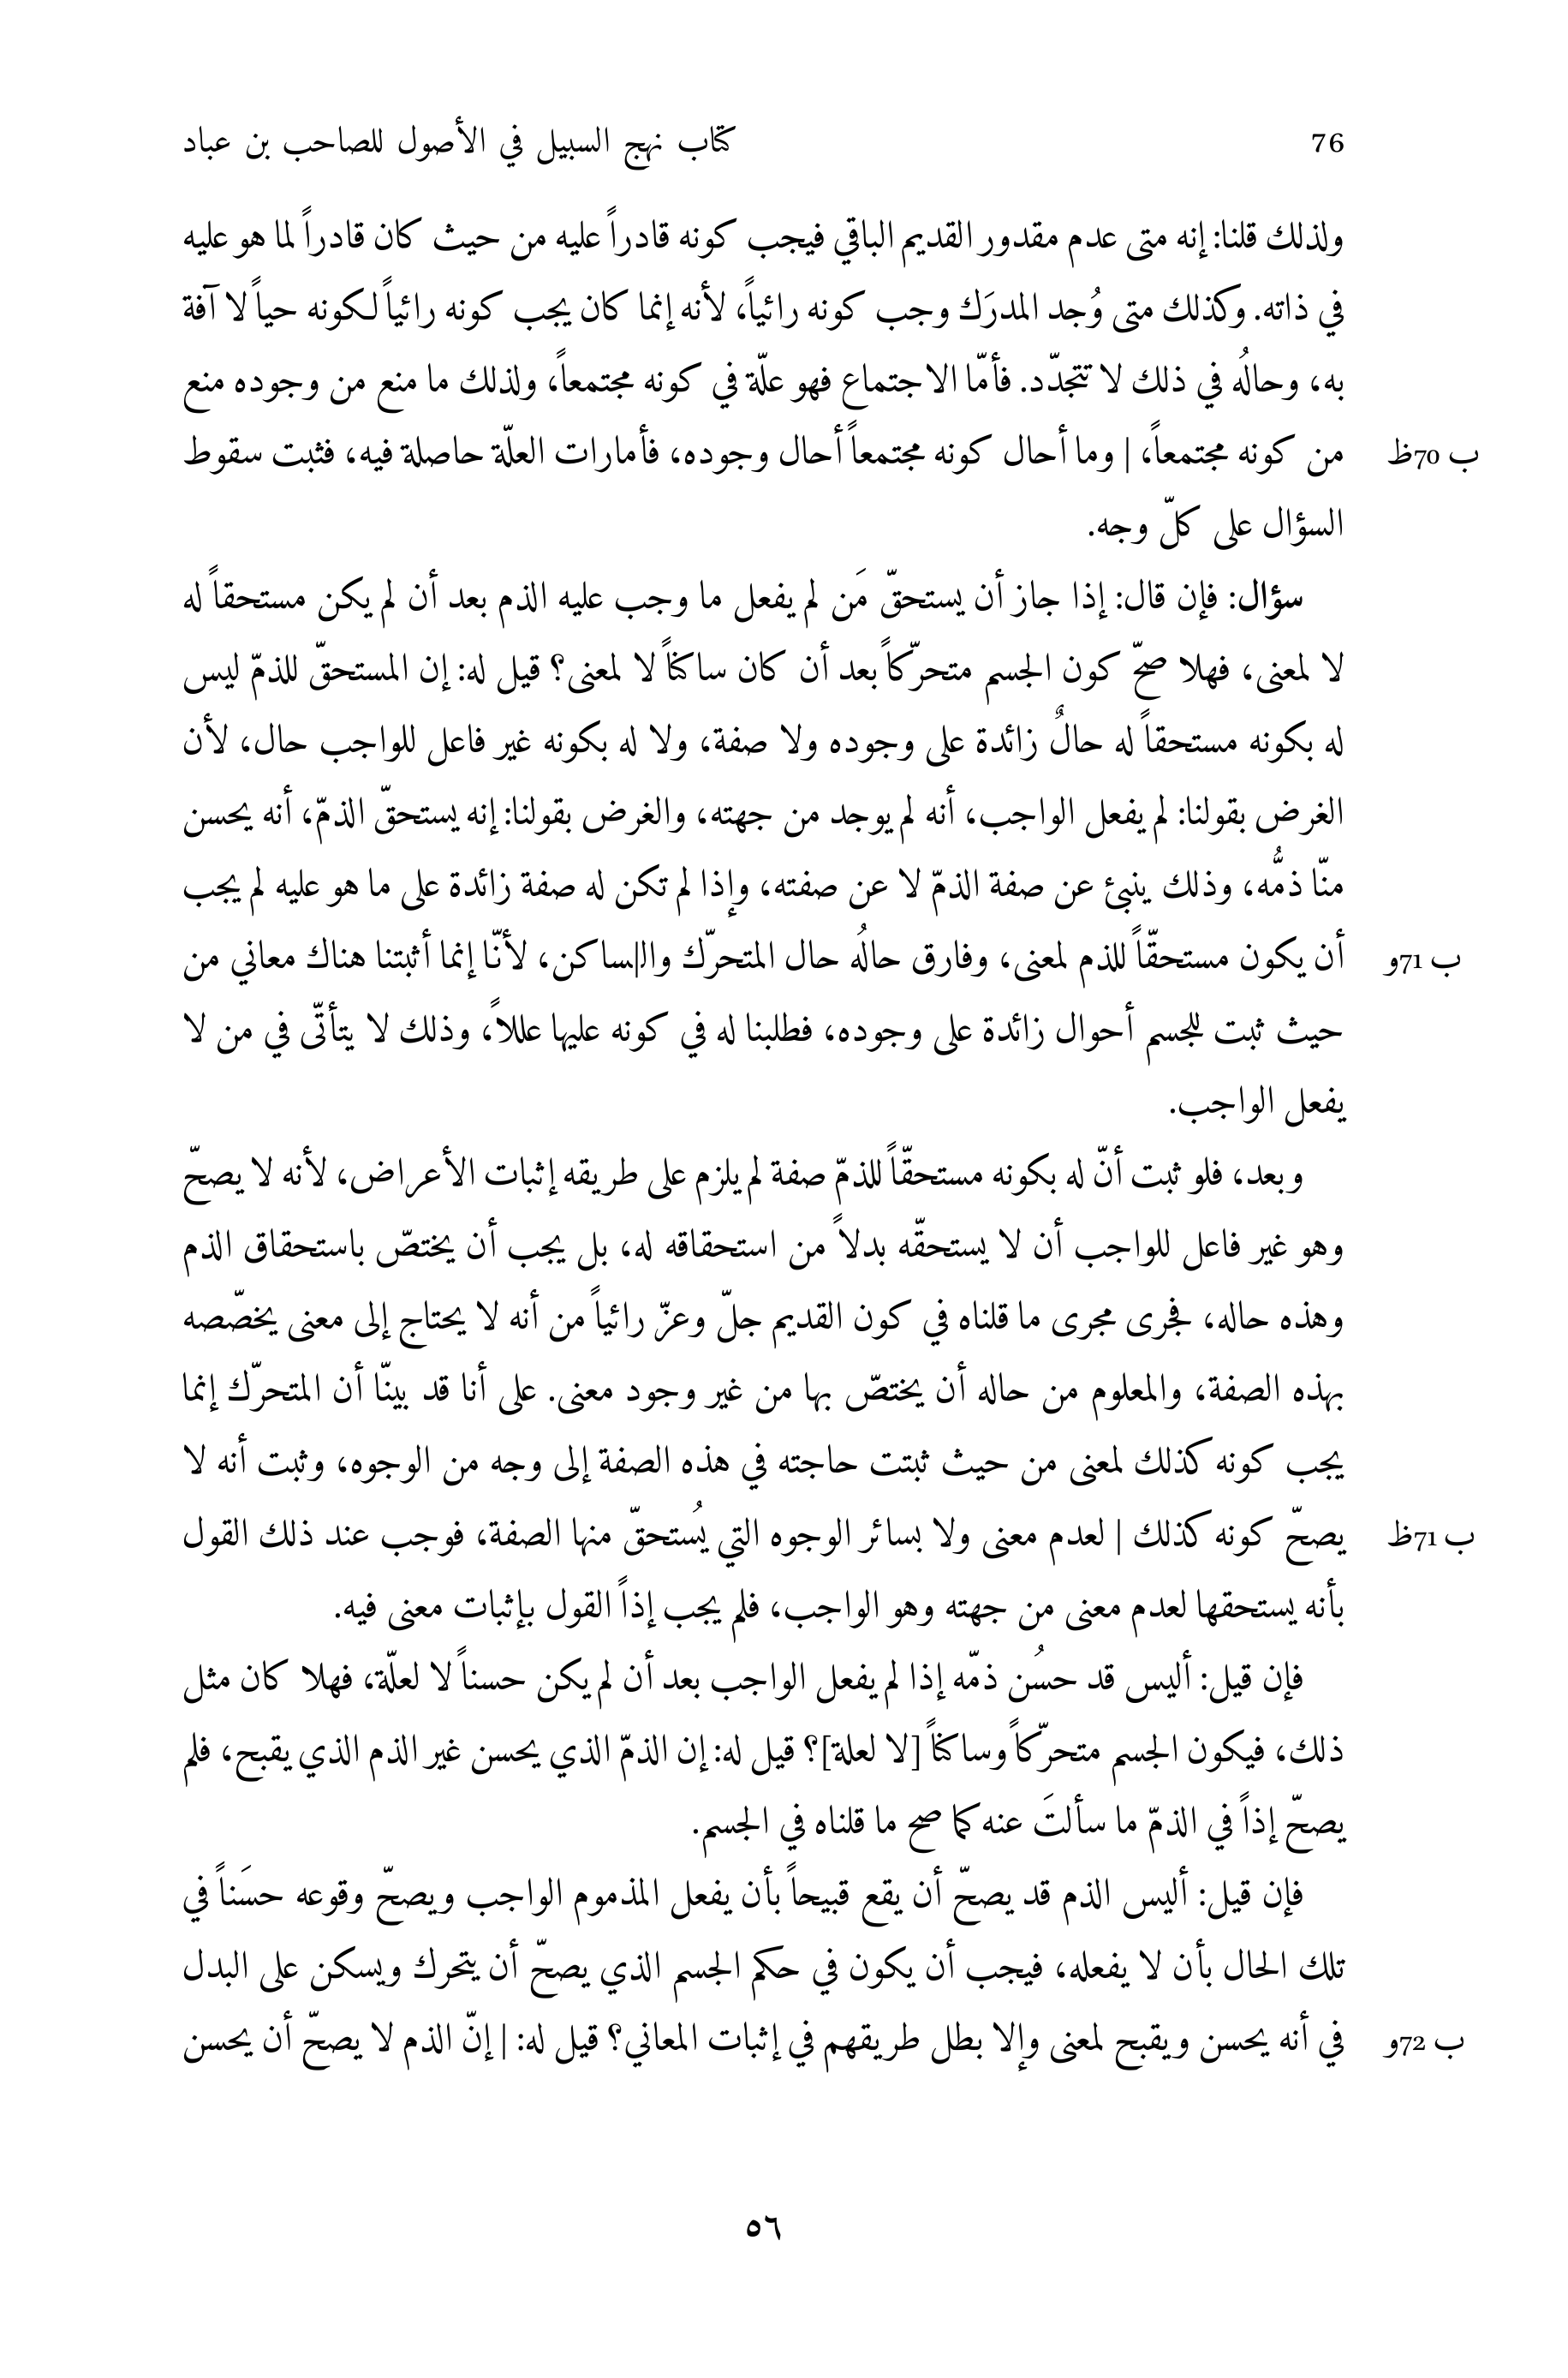 76 كتاب نهج السبيل في الأصول للصاحب بن عباد
ولذلك قلنا: إنه متى عدم مقدور القديم الباقي فيجب كونه قادراً عليه من حيث كان قادراً لما هو عليه
في ذاته. وكذلك متى وُجد المدرَك وجب كونه رائياً، لأنه إنما كان يجب كونه رائياً لكونه حياً لا آفة
به، وحالُه في ذلك لا تتجدّد. فأمّا الاجتماع فهو علّة في كونه مجتمعاً، ولذلك ما منع من وجوده منع
ب 70ظ من كونه مجتمعاً، | وما أحال كونه مجتمعاً أحال وجوده، فأمارات العلّة حاصلة فيه، فثبت سقوط
السؤال على كلّ وجه.
سؤال: فإن قال: إذا جاز أن يستحقّ مَن لم يفعل ما وجب عليه الذم بعد أن لم يكن مستحقاً له
لا لمعنى، فهلا صحّ كون الجسم متحرّكاً بعد أن كان ساكناً لا لمعنى؟ قيل له: إن المستحقّ للذمّ ليس
له بكونه مستحقاً له حالٌ زائدة على وجوده ولا صفة، ولا له بكونه غير فاعل للواجب حال، لأن
الغرض بقولنا: لم يفعل الواجب، أنه لم يوجد من جهته، والغرض بقولنا: إنه يستحقّ الذمّ، أنه يحسن
منّا ذمُّه، وذلك ينبئ عن صفة الذمّ لا عن صفته، وإذا لم تكن له صفة زائدة على ما هو عليه لم يجب
ب 71و أن يكون مستحقّاً للذم لمعنى، وفارق حالُه حال المتحرّك وال|ساكن، لأنّا إنما أثبتنا هناك معاني من
حيث ثبت للجسم أحوال زائدة على وجوده، فطلبنا له في كونه عليها عللاً، وذلك لا يتأتّى في من لا
يفعل الواجب.
وبعد، فلو ثبت أنّ له بكونه مستحقّاً للذمّ صفة لم يلزم على طريقه إثبات الأعراض، لأنه لا يصحّ
وهو غير فاعل للواجب أن لا يستحقّه بدلاً من استحقاقه له، بل يجب أن يختصّ باستحقاق الذم
وهذه حاله، فجرى مجرى ما قلناه في كون القديم جلّ وعزّ رائياً من أنه لا يحتاج إلى معنى يخصّصه
بهذه الصفة، والمعلوم من حاله أن يختصّ بها من غير وجود معنى. على أنا قد بينّا أن المتحرّك إنما
يجب كونه كذلك لمعنى من حيث ثبتت حاجته في هذه الصفة إلى وجه من الوجوه، وثبت أنه لا
ب 71ظ يصحّ كونه كذلك | لعدم معنى ولا بسائر الوجوه التي يُستحقّ منها الصفة، فوجب عند ذلك القول
بأنه يستحقها لعدم معنى من جهته وهو الواجب، فلم يجب إذاً القول بإثبات معنى فيه.
فإن قيل: أليس قد حسُن ذمّه إذا لم يفعل الواجب بعد أن لم يكن حسناً لا لعلّة، فهلا كان مثل
ذلك، فيكون الجسم متحرّكاً وساكناً [لا لعلة]؟ قيل له: إن الذمّ الذي يحسن غير الذم الذي يقبح، فلم
يصحّ إذاً في الذمّ ما سألتَ عنه كما صح ما قلناه في الجسم.
فإن قيل: أليس الذم قد يصحّ أن يقع قبيحاً بأن يفعل المذموم الواجب ويصحّ وقوعه حسَناً في
تلك الحال بأن لا يفعله، فيجب أن يكون في حكم الجسم الذي يصحّ أن يتحرك ويسكن على البدل
ب 72و في أنه يحسن ويقبح لمعنى وإلا بطل طريقهم في إثبات المعاني؟ قيل له: | إنّ الذم لا يصحّ أن يحسن
٥٦